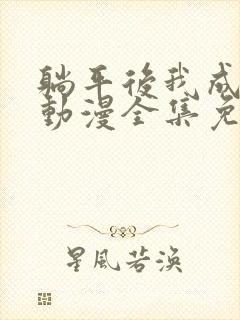 躺平後我成
動漫全集免
星風若渙